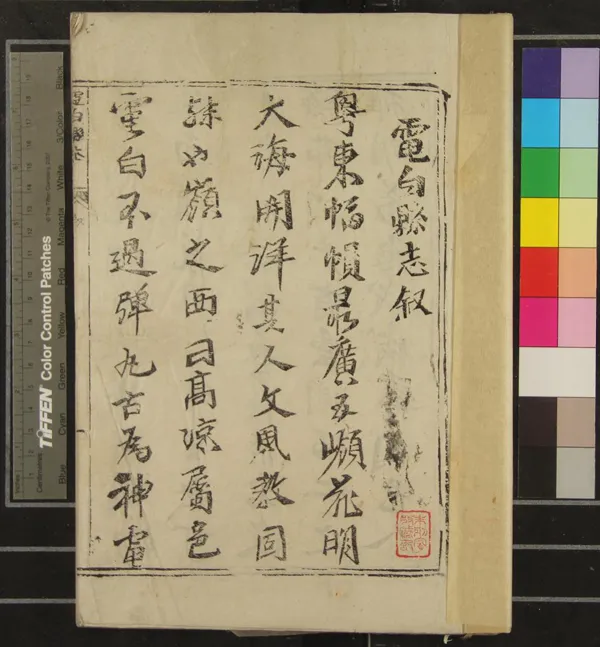 電白縣志叙
粤東幅幀最廣五嶺花明
大海開洋其人文風教固
殊也嶺之西曰高凉屬邑
電白不過弹丸古為神電
TIFFEN Color Control Patches
© The Tiffen Company, 2007
Centimetres
Inches
Blue Cyan Green Yellow Red Magenta White 3/Color Black